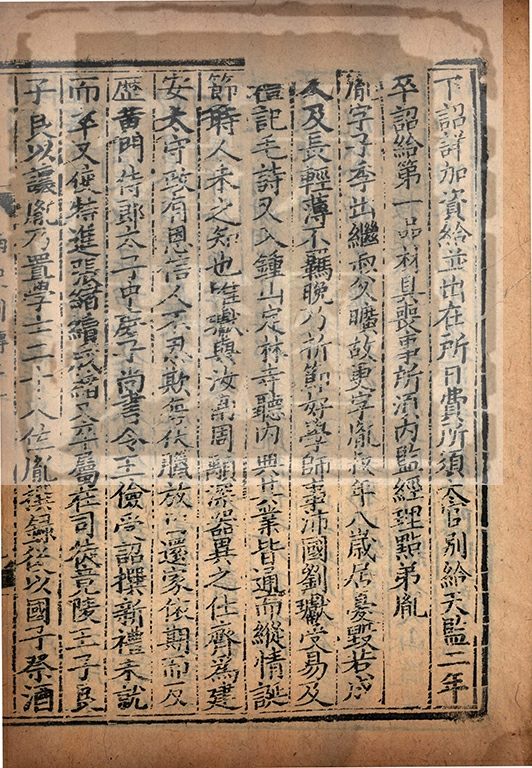 下詔詳加資給並出在所日費所須太官別給天監二年
卒詔給第一品材具喪事所須内監經理點弟胤
胤字子季出繼叔父曠故更字胤叔年八歳居憂毀若成
人及長輕薄不羈晚乃折節好學師事沛國劉瓛受易及
禮記毛詩又入鍾山定林寺聽内典其業皆通而縱情誕
節時人未之知也唯瓛與汝南周顒深器異之仕齊爲建
安太守政有恩信人不忍欺每伏臘放囚還家依期而反
歷黄門侍郎太子中庶子尚書令王儉受詔撰新禮未就
而卒又使特進張緒續成緒又卒屬在司徒竟陵王子良
子良以讓胤乃置學士二十人佐胤撰録後以國子祭酒